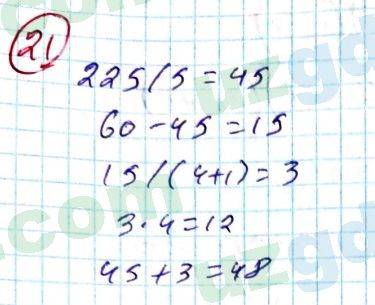 21
225/5 = 45
60 - 45 = 15
15/(4+1) = 3
3 · 4 = 12
45 + 3 = 48